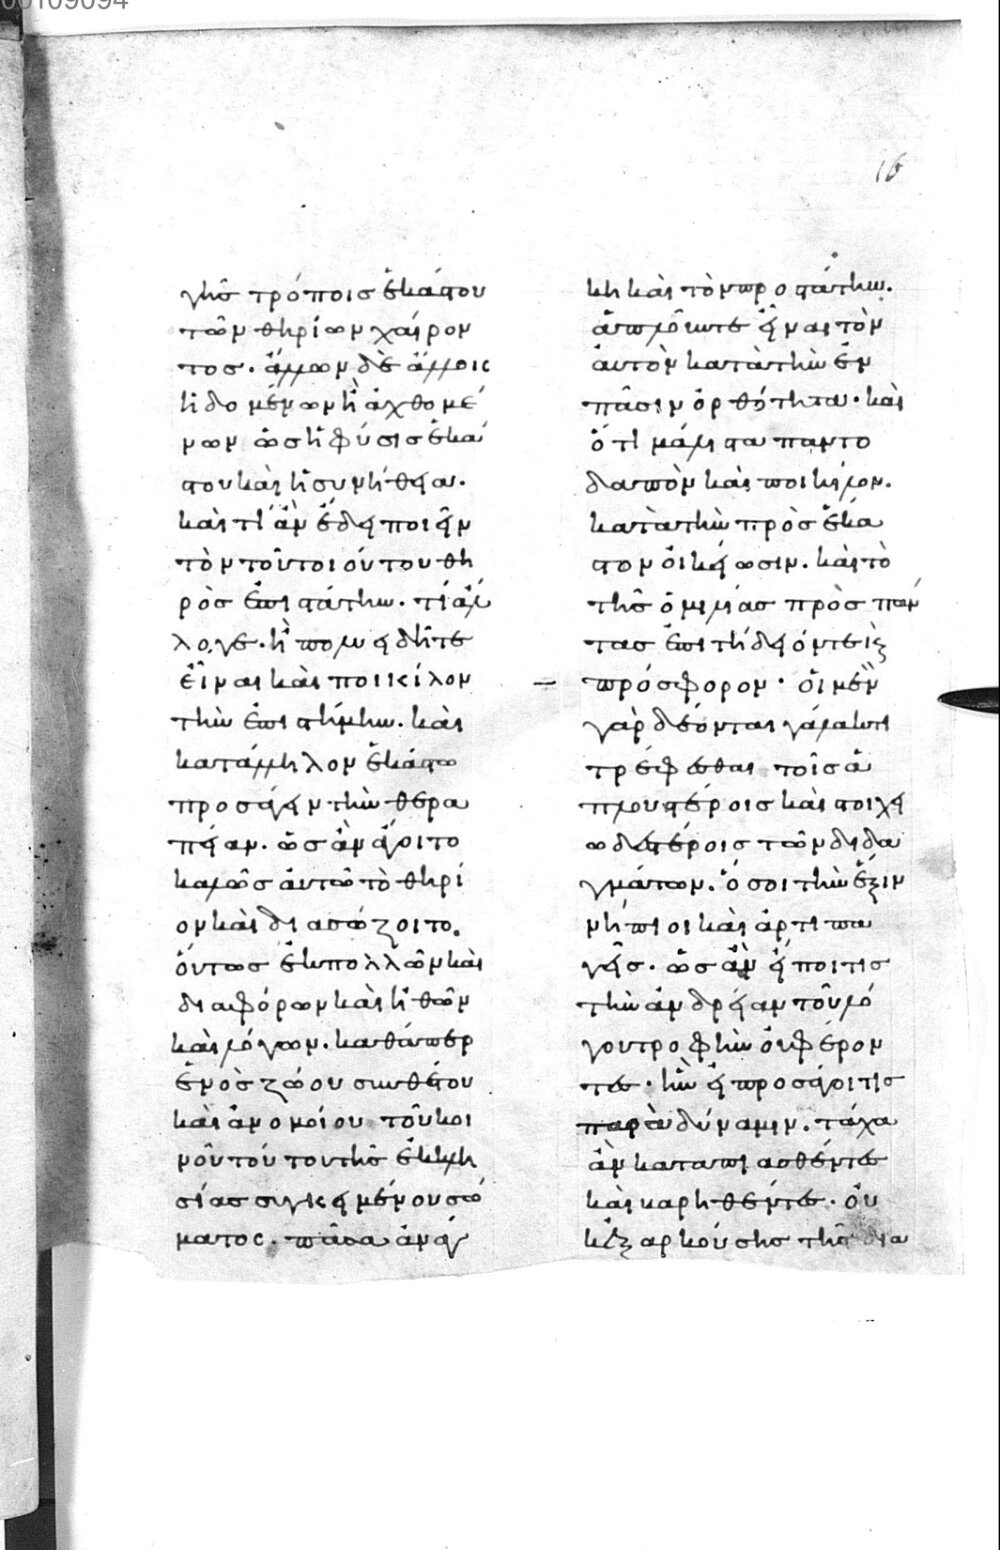 00109094
16
γῆς τρόποις ἑκάστου
τῶν θηρίων χαίρον
τος. ἄλλων δὲ ἄλλοις
ἡδομένων ἢ ἀχθομέ
νων ὡς ἡ φύσις ἑκά
στου καὶ ἡ συνήθεια.
καὶ τί ἂν ἔδει ποιεῖν
τὸν τοῦ τοιούτου θη
ρὸς ἐπιστάτην. τί ἄλ
λο γε. ἢ πολυειδῆ τε
εἶναι καὶ ποικίλον
τὴν ἐπιστήμην. καὶ
κατάλληλον ἑκάστω
προσάγειν τὴν θερα
πείαν. ὡς ἂν ἄγοιτο
καλῶς αὐτῶ τὸ θηρί
ον καὶ διασώζοιτο.
οὕτως ἐκ πολλῶν καὶ
διαφόρων καὶ ἠθῶν
καὶ λόγων. καθάπερ
ἑνὸς ζώου συνθέτου
καὶ ἀνομοίου τοῦ κοι
νοῦ τούτου τῆς ἐκκλη
σίας συγκειμένου σώ
ματος. πᾶσα ἀνάγ
κη καὶ τὸν προστάτην.
ἁπλοῦν τε εἶναι τὸν
αὐτὸν κατὰ τὴν ἐν
πᾶσιν ὀρθότητα. καὶ
ὅτι μάλιστα παντο
δαπὸν καὶ ποικίλον.
κατὰ τὴν πρὸς ἕκα
στον οἰκείωσιν. καὶ τὸ
τῆς ὁμιλίας πρὸς πάν
τας ἐπιτήδειόν τε καὶ
πρόσφορον. οἱ μὲν
γὰρ δέονται γάλακτι
τρέφεσθαι τοῖς ἁ
πλουστέροις καὶ στοιχει
ωδεστέροις τῶν διδα
γμάτων. ὅσοι τὴν ἕξιν
νήπιοι καὶ ἀρτιπα
γεῖς. ὡς ἂν εἴποι τις
τὴν ἀνδρείαν τοῦ λό
γου τροφὴν οὐ φέρον
τες. ἣν εἰ προσάγοι τις
παρὰ δύναμιν. τάχα
ἂν καταπιεσθέντες
καὶ βαρηθέντες. οὐ
κ ἐξαρκούσης τῆς δια